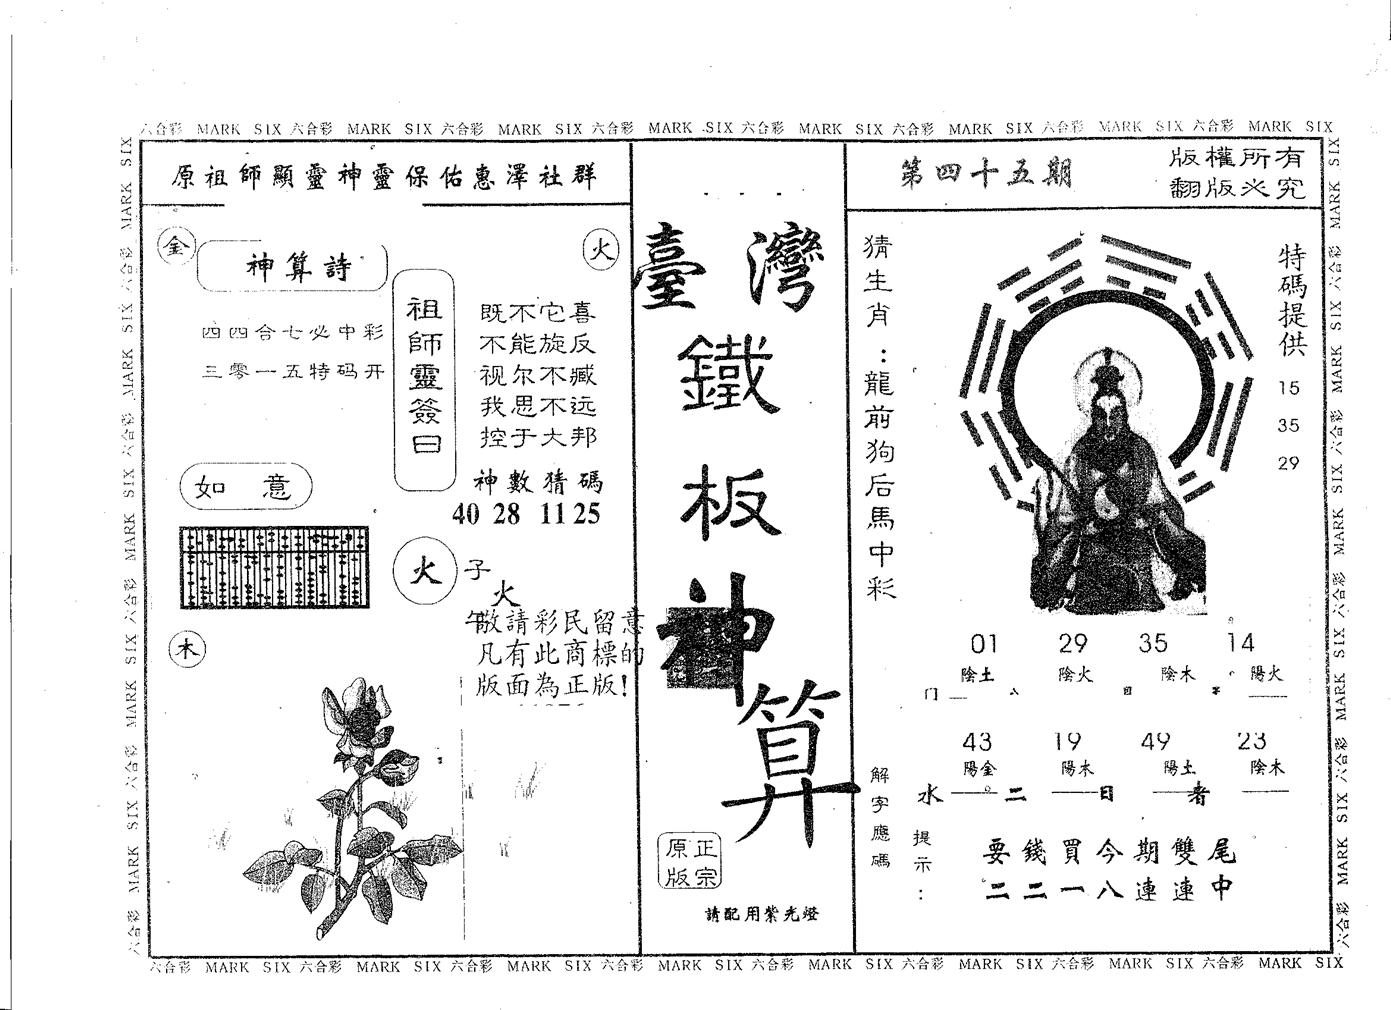 六合彩 MARK SIX 六合彩 MARK SIX 六合彩 MARK SIX 六合彩 MARK SIX 六合彩 MARK SIX 六合彩 MARK SIX 六合彩 MARK SIX 六合彩 MARK SIX
原祖師顯靈神靈保佑惠澤社群
金
神算詩
火
四四合七必中彩
三零一五特码开
祖師靈簽曰
既不它喜
不能旋反
视尔不臧
我思不远
控于大邦
神數猜碼
40 28 11 25
如 意
火
子
火
午
敬請彩民留意
凡有此商標的
版面為正版!
木
臺灣
鐵
板
神
算
正宗
原版
請配用紫光燈
第四十五期
版權所有
翻版必究
猜生肖：龍前狗后馬中彩
特碼提供
15
35
29
01 29 35 14
陰土 陰火 陰木 陽火
门 八 目 不
43 19 49 23
陽金 陽木 陽土 陰木
水 二 日 者
解字應碼
提示：
要錢買今期雙尾
二二一八連連中
六合彩 MARK SIX 六合彩 MARK SIX 六合彩 MARK SIX 六合彩 MARK SIX 六合彩 MARK SIX 六合彩 MARK SIX 六合彩 MARK SIX 六合彩 MARK SIX